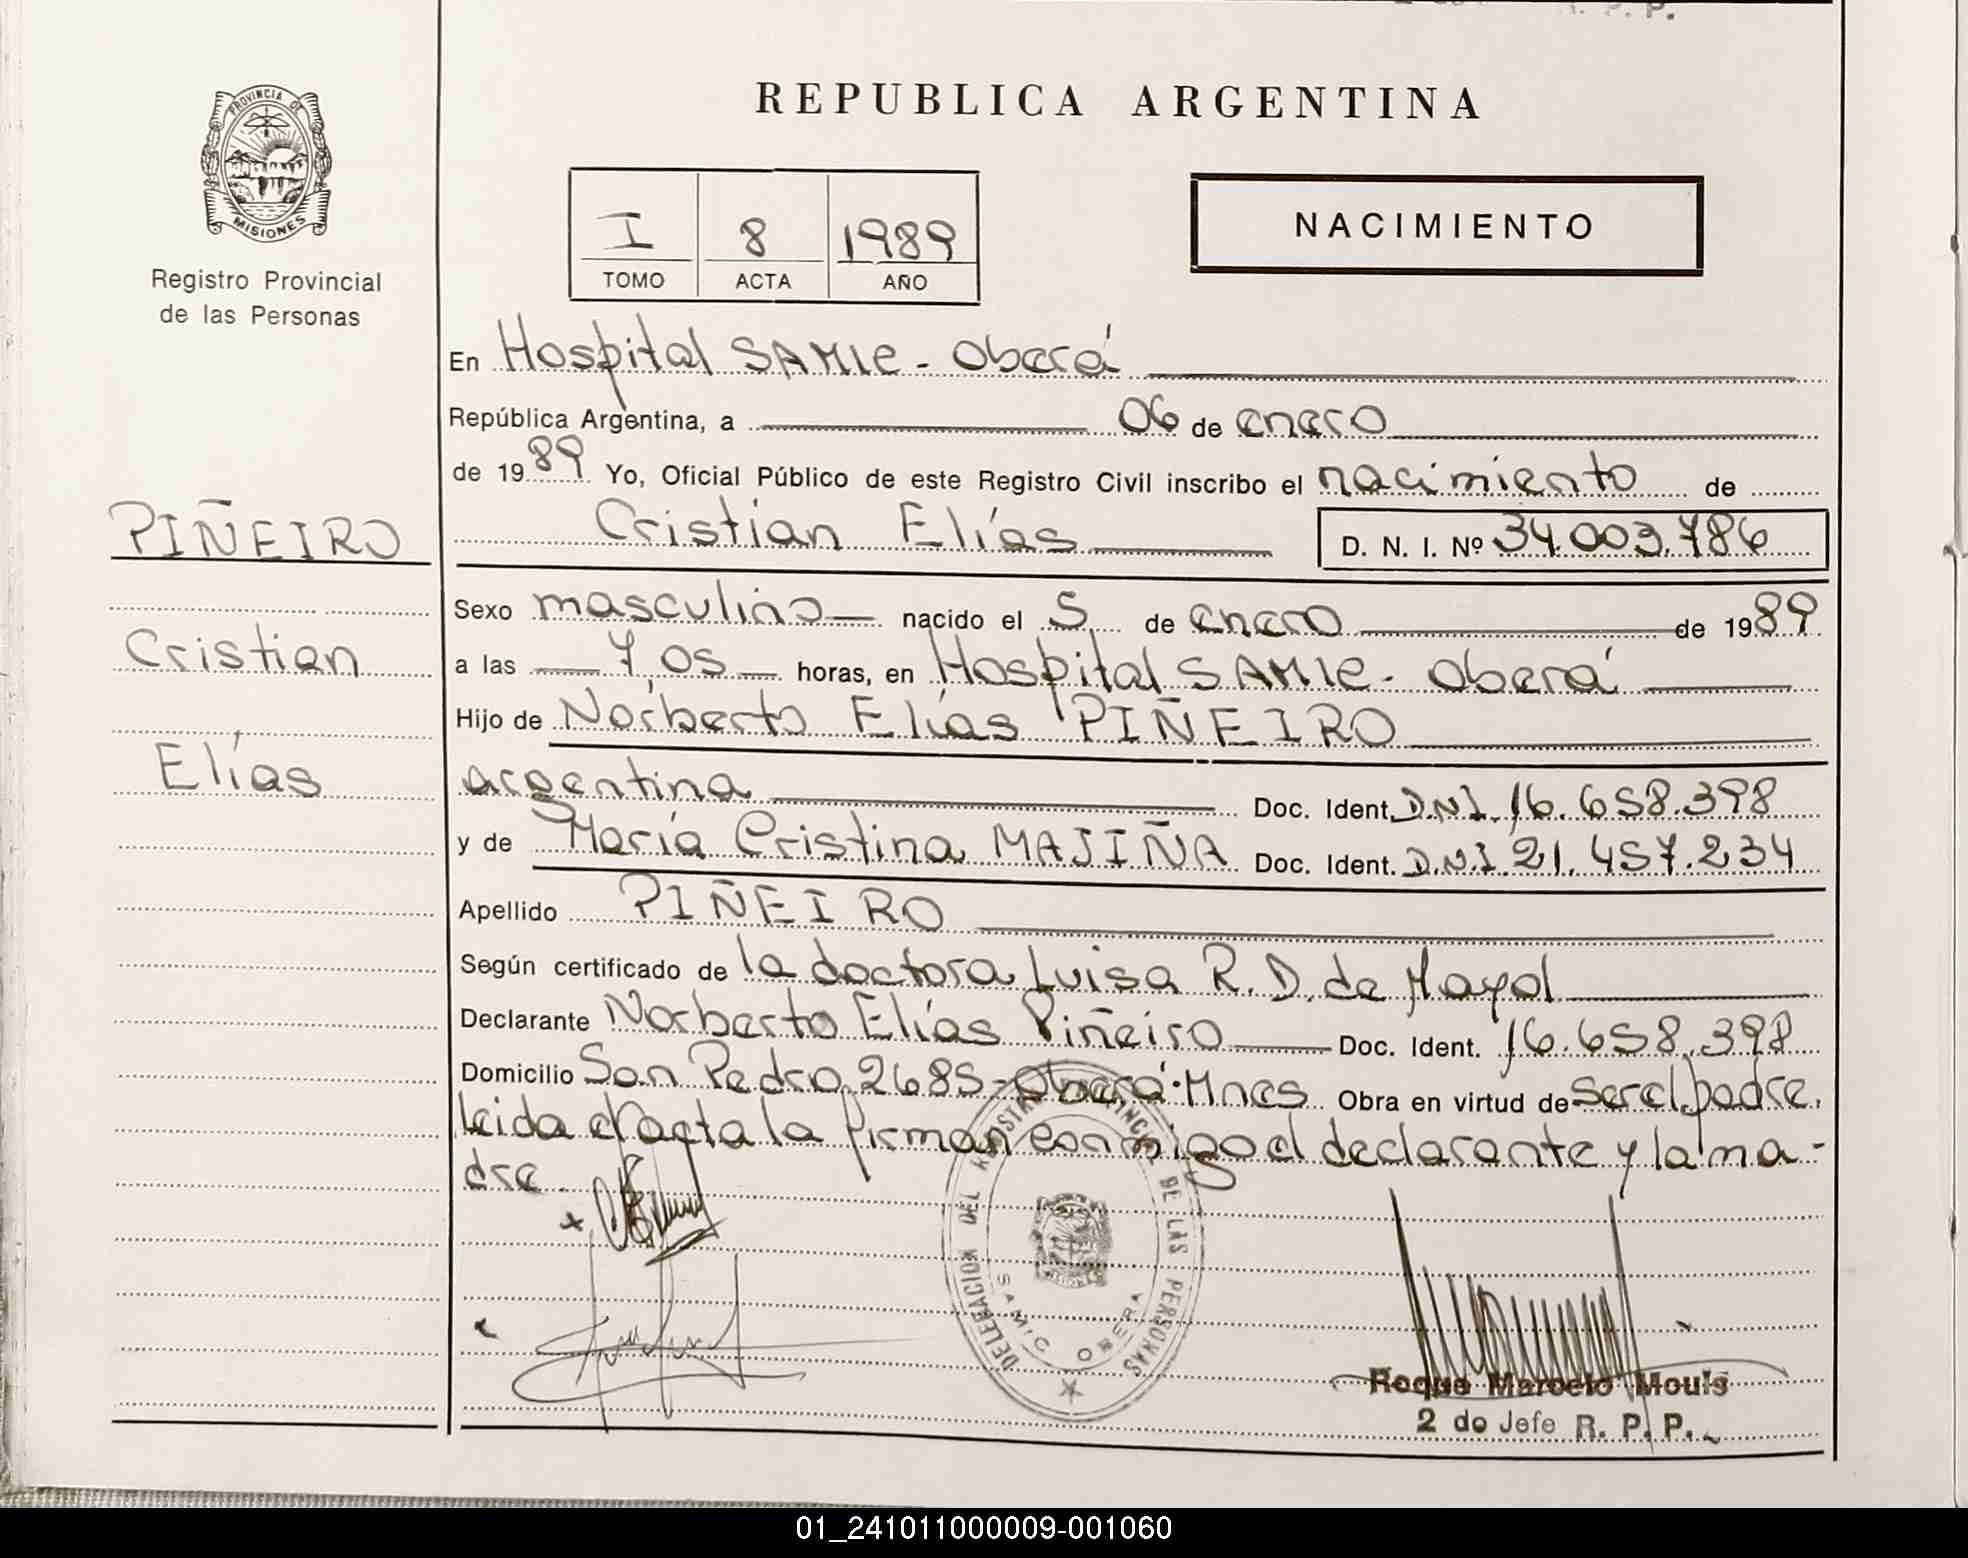 R. P. P.
PROVINCIA DE
MISIONES
Registro Provincial
de las Personas
REPUBLICA ARGENTINA
I 8 1989
TOMO ACTA AÑO
NACIMIENTO
En Hospital SAMIC - Oberá
República Argentina, a 06 de enero
de 1989 Yo, Oficial Público de este Registro Civil inscribo el nacimiento de
Cristian Elías D. N. I. Nº 34.003.786
PIÑEIRO
Cristian
Elías
Sexo masculino nacido el 5 de enero de 1989
a las 7,05 horas, en Hospital SAMIC - Oberá
Hijo de Norberto Elías PIÑEIRO
argentina Doc. Ident. D.N.I. 16.658.398
y de María Cristina MAJIÑA Doc. Ident. D.N.I. 21.457.234
Apellido PIÑEIRO
Según certificado de la doctora Luisa R. D. de Mayol
Declarante Norberto Elías Piñeiro Doc. Ident. 16.658.398
Domicilio San Pedro 2685 - Oberá - Mnes Obra en virtud de ser el padre.
leida el acta la firman conmigo el declarante y la ma-
dre.
DELEGACION DEL REGISTRO PROVINCIAL DE LAS PERSONAS
SAMIC OBERA
Roque Marcelo Mouls
2 do Jefe R. P. P.
01_241011000009-001060